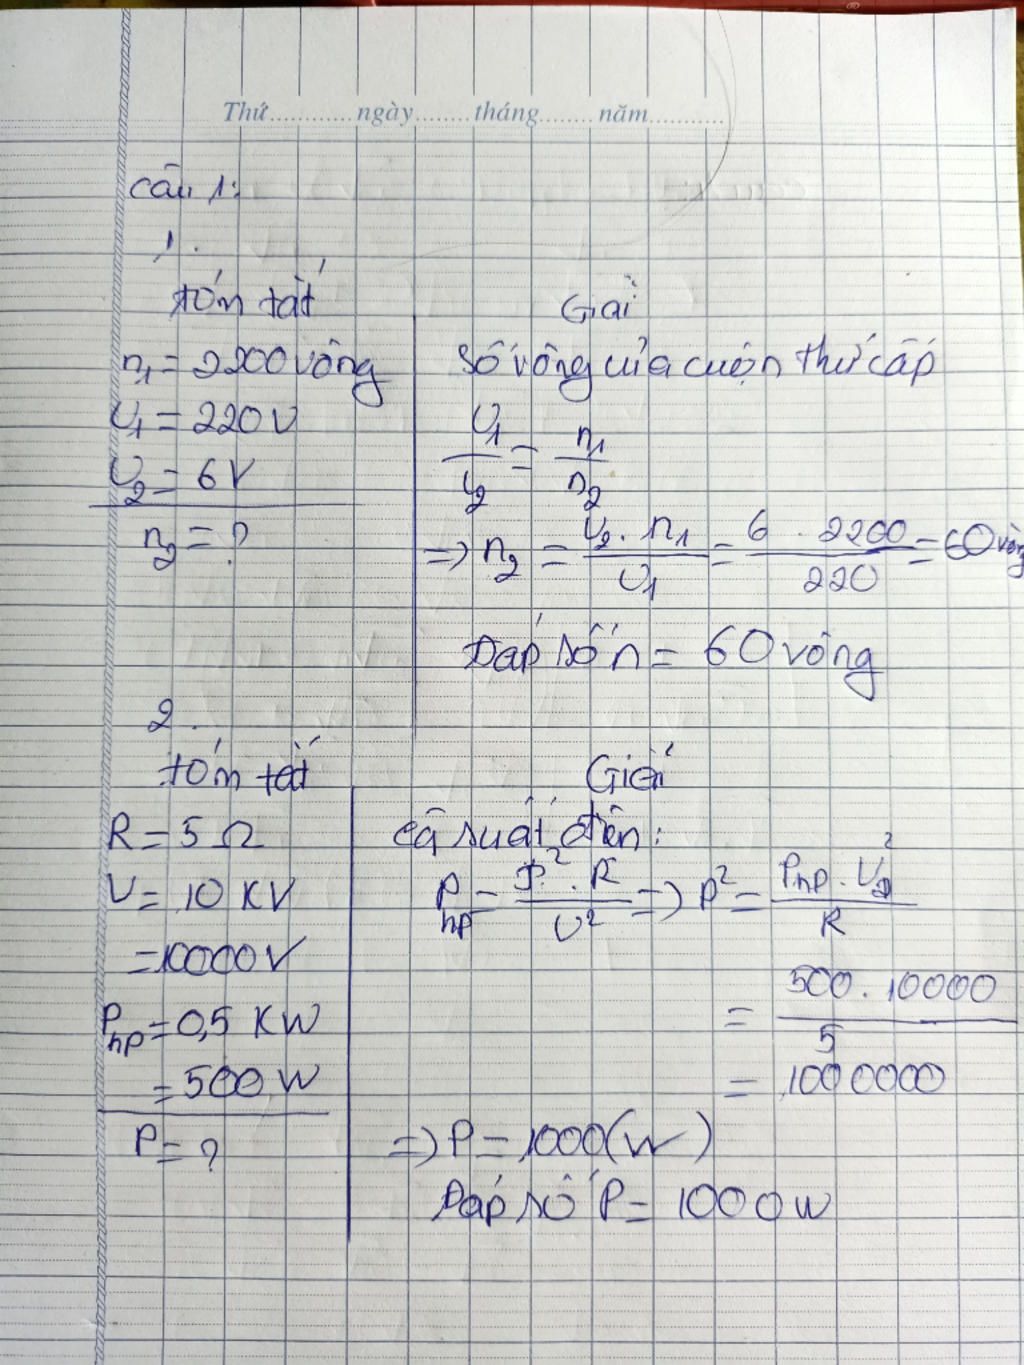 Thứ............ngày........tháng........năm...........
Câu 1:
1.
tóm tắt
n₁ = 2200 vòng
U₁ = 220V
U₂ = 6V
n₂ = ?
Giải
Số vòng của cuộn thứ cấp
U₁/U₂ = n₁/n₂
=> n₂ = U₂ . n₁/U₁ = 6 . 2200/220 = 60 vòng
Đáp số n = 60 vòng
2.
tóm tắt
R = 5 Ω
U = 10 KV
= 10000V
Php = 0,5 KW
= 500 W
P = ?
Giải
suất điện:
Php = P² . R/U² => P² = Php . U²/R
= 500 . 10000/5
= 1000000
=> P = 1000 (W)
Đáp số P = 1000 W